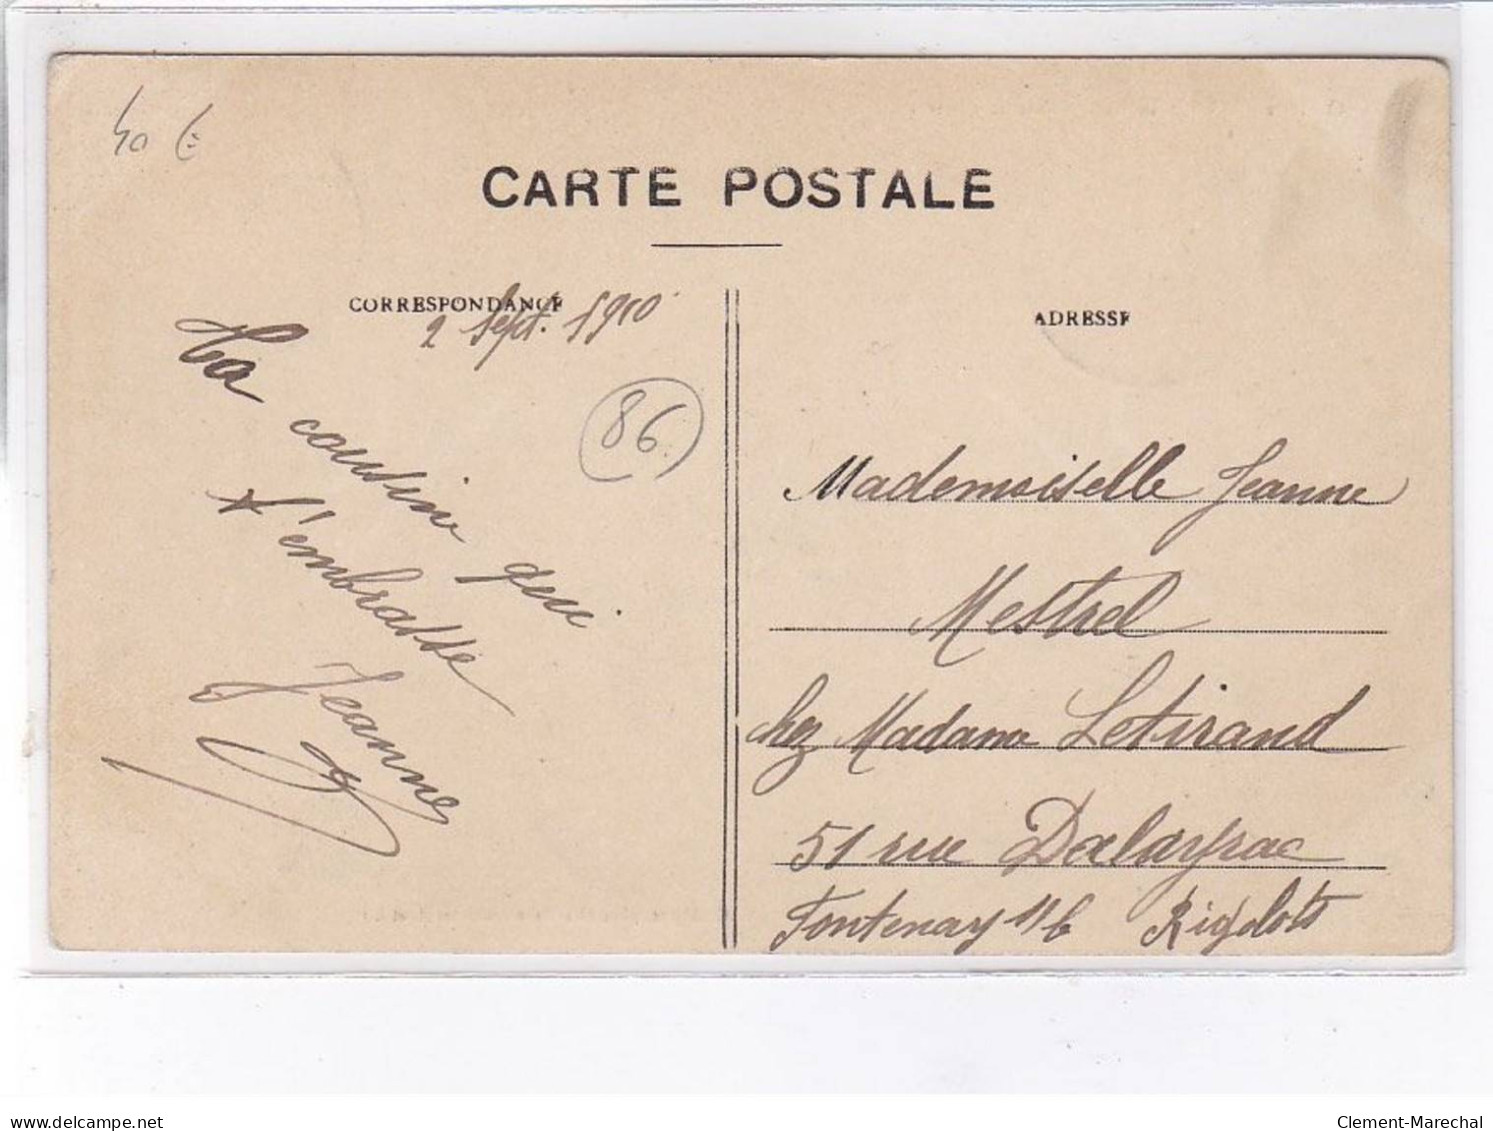 40 €
CARTE POSTALE
CORRESPONDANCE
2 Sept. 1910
86
Ta cousine qui
t'embrasse
Jeanne
ADRESSE
Mademoiselle Jeanne
Mestrel
chez Madame Letirand
51 rue Dalayrac
Fontenay s/b Rigolots
delcampe.net
Clement-Marechal